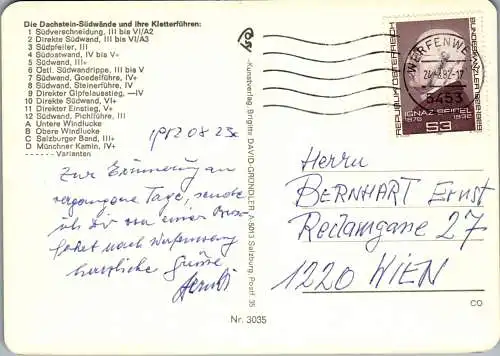 Die Dachstein-Südwände und ihre Kletterführen:
1 Südverschneidung, III bis VI/A2
2 Direkte Südwand, III bis VI/A3
3 Südpfeiler, III
4 Südostwand, IV bis V+
5 Südwand, III+
6 Östl. Südwandrippe, III bis V
7 Südwand, Goedelführe, IV+
8 Südwand, Steinerführe, IV
9 Direkter Gipfelausstieg, —IV
10 Direkte Südwand, VI+
11 Direkter Einstieg, V+
12 Südwand, Pichlführe, III
A Untere Windlucke
B Obere Windlucke
C Salzburger Band, III+
D Münchner Kamin, IV+
------ Varianten
1982 08 23
Zur Erinnerung an
vergangene Tage, sende
ich Dir von einer
nach Werfenweng
herzliche Grüße
Kunstverlag Brigitte DAVID-GRÜNDLER A-5013 Salzburg, Postf. 35
Nr. 3035
WERFENWENG
5453
REPUBLIK ÖSTERREICH
BUNDESKANZLER 1922–1929
IGNAZ SEIPEL
1876 1932
S3
Herrn
BERNHART Ernst
Reclamgasse 27
1220 WIEN
CO